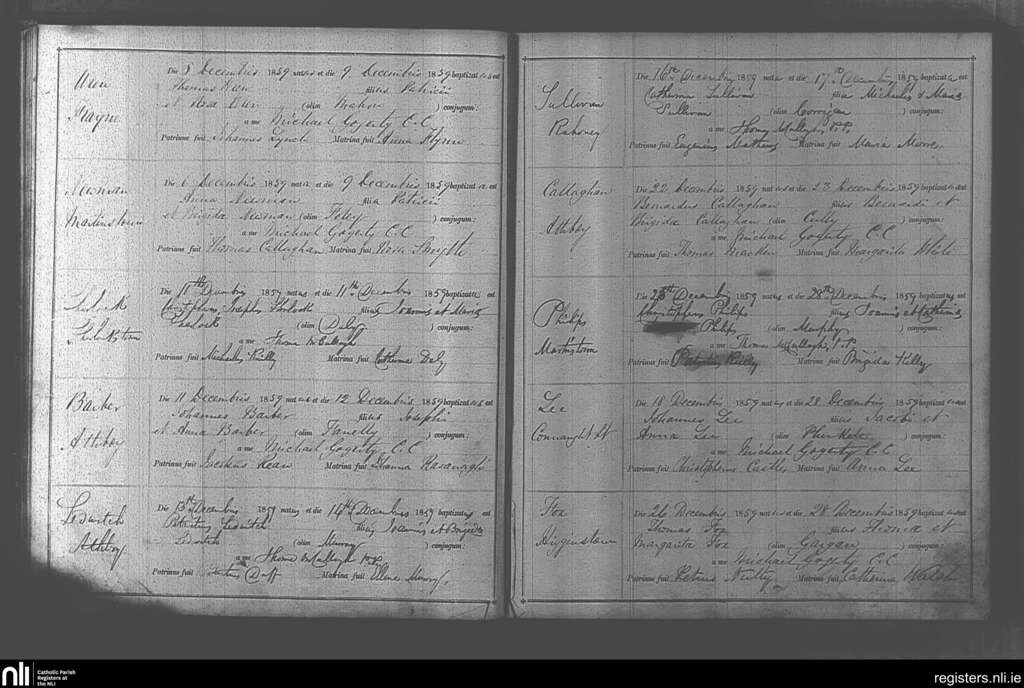 Die 8 Decembris 1859 natus et die 9 Decembris 1859 baptizatus est
Thomas filius Patricii
et (olim Mahon) conjugum:
a me Michael Gogerty C.C.
Patrinus fuit Johannes Lynch Matrina fuit Anna Flynn
Newman
Martinstown
Die 6 Decembris 1859 nata et die 9 Decembris 1859 baptizata est
Anna Newman filia Patricii
et Brigida Newman (olim Foley) conjugum:
a me Michael Gogerty C.C.
Patrinus fuit Thomas Callaghan Matrina fuit Rosa Smyth
Die 11th Decembris 1859 natus et die 11th Decembris 1859 baptizatus est
Christophorus Joseph filius Joannis et Maria
(olim Daly) conjugum:
a me Thoma McCullagh
Patrinus fuit Michael Reilly Matrina fuit Catherina Daly
Barker
Athboy
Die 11 Decembris 1859 natus et die 12 Decembris 1859 baptizatus est
Johannes Barker filius Josephi
et Anna Barker (olim Fanelly) conjugum:
a me Michael Gogerty C.C.
Patrinus fuit Matrina fuit Johanna Kavanagh
Ledwitch
Athboy
Die 13th Decembris 1859 natus et die 14th Decembris 1859 baptizatus est
Ledwitch filius Joannis et Brigida
Ledwitch (olim Murray) conjugum:
a me Thoma McCullagh P.P.
Patrinus fuit Matrina fuit Murray
Sullivan
Rahoney
Die 16th Decembris 1859 nata et die 17th Decembris 1859 baptizata est
Catherina Sullivan filia Michaelis & Maria
Sullivan (olim Corrigan) conjugum:
a me Thoma McCullagh P.P.
Patrinus fuit Eugenius Mathews Matrina fuit Maria Moore
Callaghan
Athboy
Die 22 Decembris 1859 natus et die 23 Decembris 1859 baptizatus est
Bernardus Callaghan filius Bernardi et
Brigida Callaghan (olim Cully) conjugum:
a me Michael Gogerty C.C.
Patrinus fuit Thomas Matrina fuit Margarita White
Philips
Martinstown
Die 28th Decembris 1859 natus et die 28th Decembris 1859 baptizatus est
Christophorus Philips filius Joannis et Catherina
Philips (olim Murphy) conjugum:
a me Thomas McCullagh P.P.
Patrinus fuit Reilly Matrina fuit Brigida Reilly
Lee
Connaught St
Die 18 Decembris 1859 natus et die 28 Decembris 1859 baptizatus est
Johannes Lee filius Jacobi et
Anna Lee (olim Plunkett) conjugum:
a me Michael Gogerty C.C.
Patrinus fuit Christopherus Matrina fuit Anna Lee
Fox
Higginstown
Die 26 Decembris 1859 natus et die 28 Decembris 1859 baptizatus est
Thomas Fox filius Thoma et
Margarita Fox (olim Gargan) conjugum:
a me Michael Gogerty C.C.
Patrinus fuit Petrus Matrina fuit Catherina Walsh
nli
Catholic Parish
Registers at
the NLI
registers.nli.ie